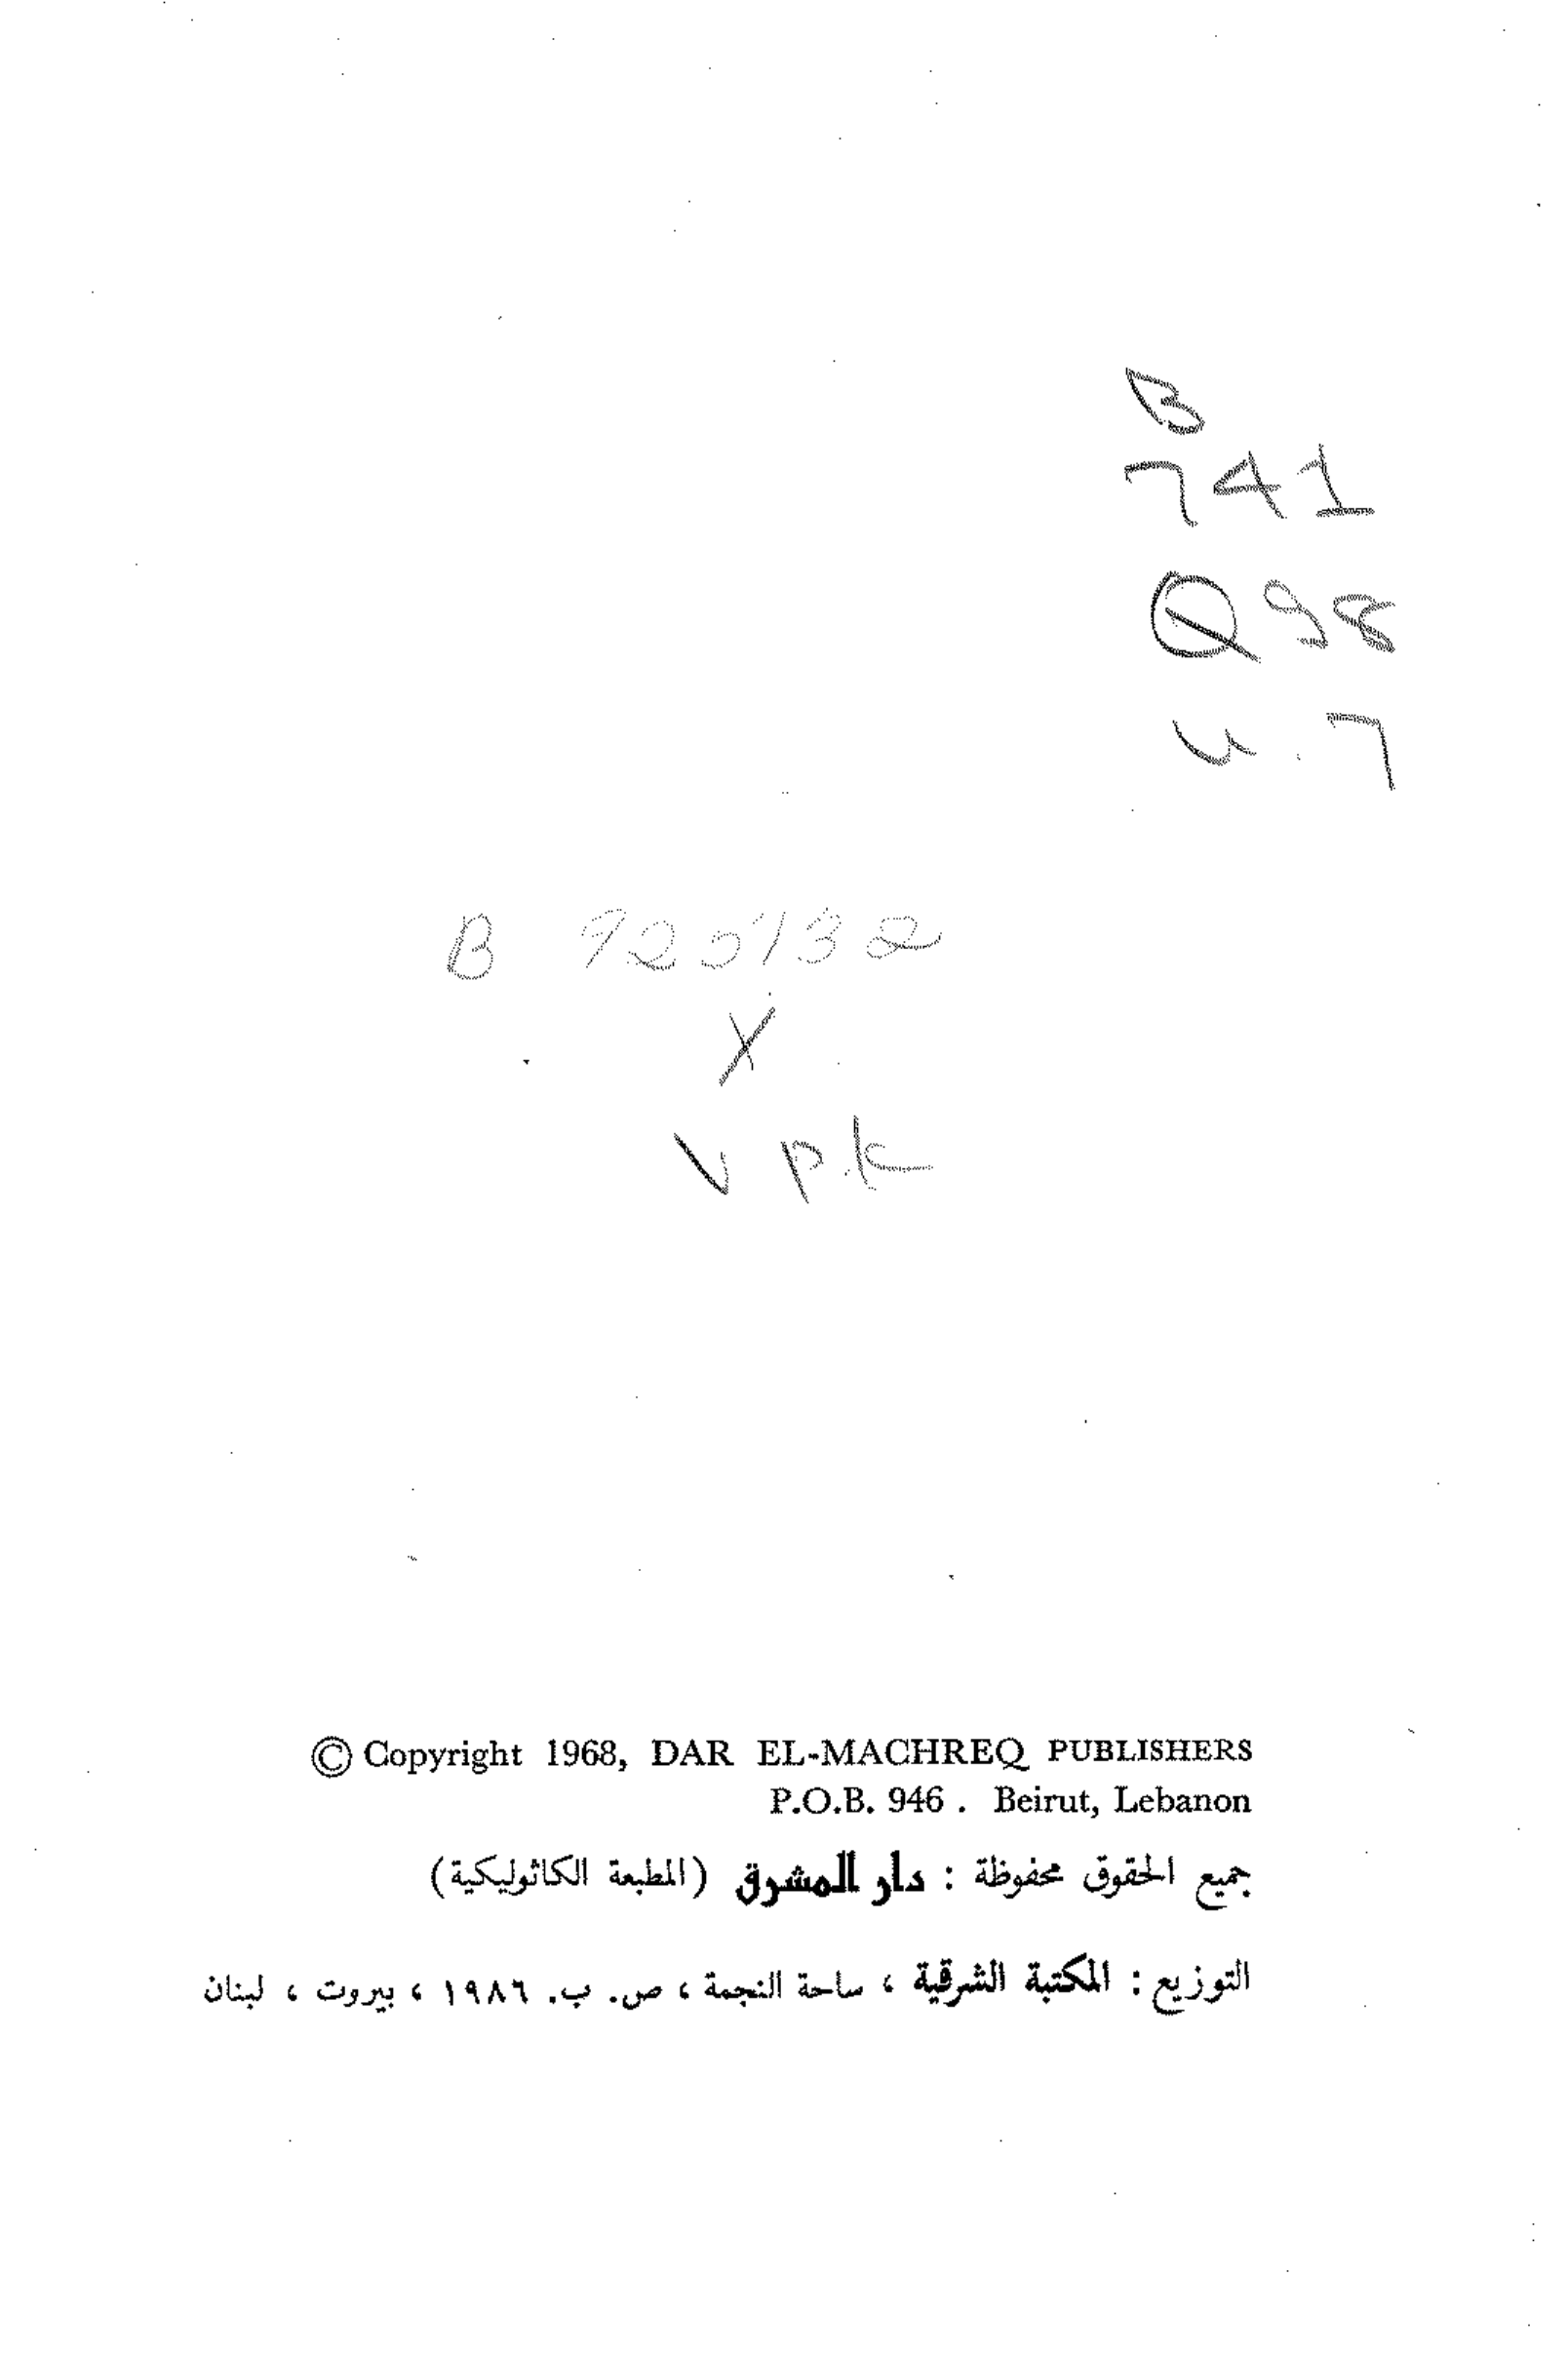 B
741
Q98
v.7
B
X
V pk
© Copyright 1968, DAR EL-MACHREQ PUBLISHERS
P.O.B. 946 . Beirut, Lebanon
جميع الحقوق محفوظة : دار المشرق (المطبعة الكاثوليكية)
التوزيع : المكتبة الشرقية ، ساحة النجمة ، ص. ب. ١٩٨٦ ، بيروت ، لبنان